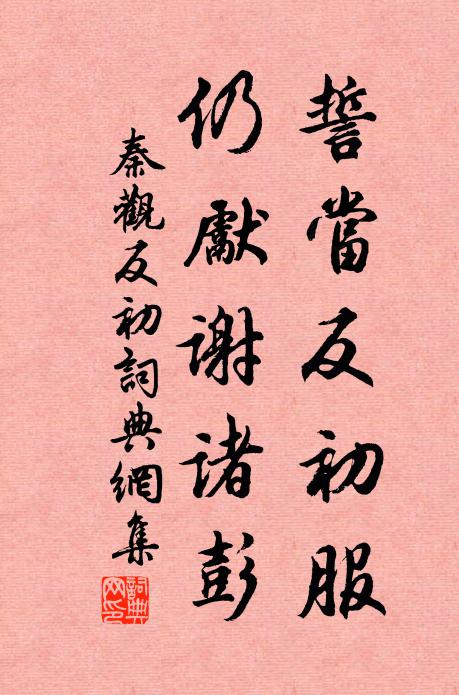 誓當反初服
仍獻謝諸彭
秦觀反初詞典網集
詞典
网印